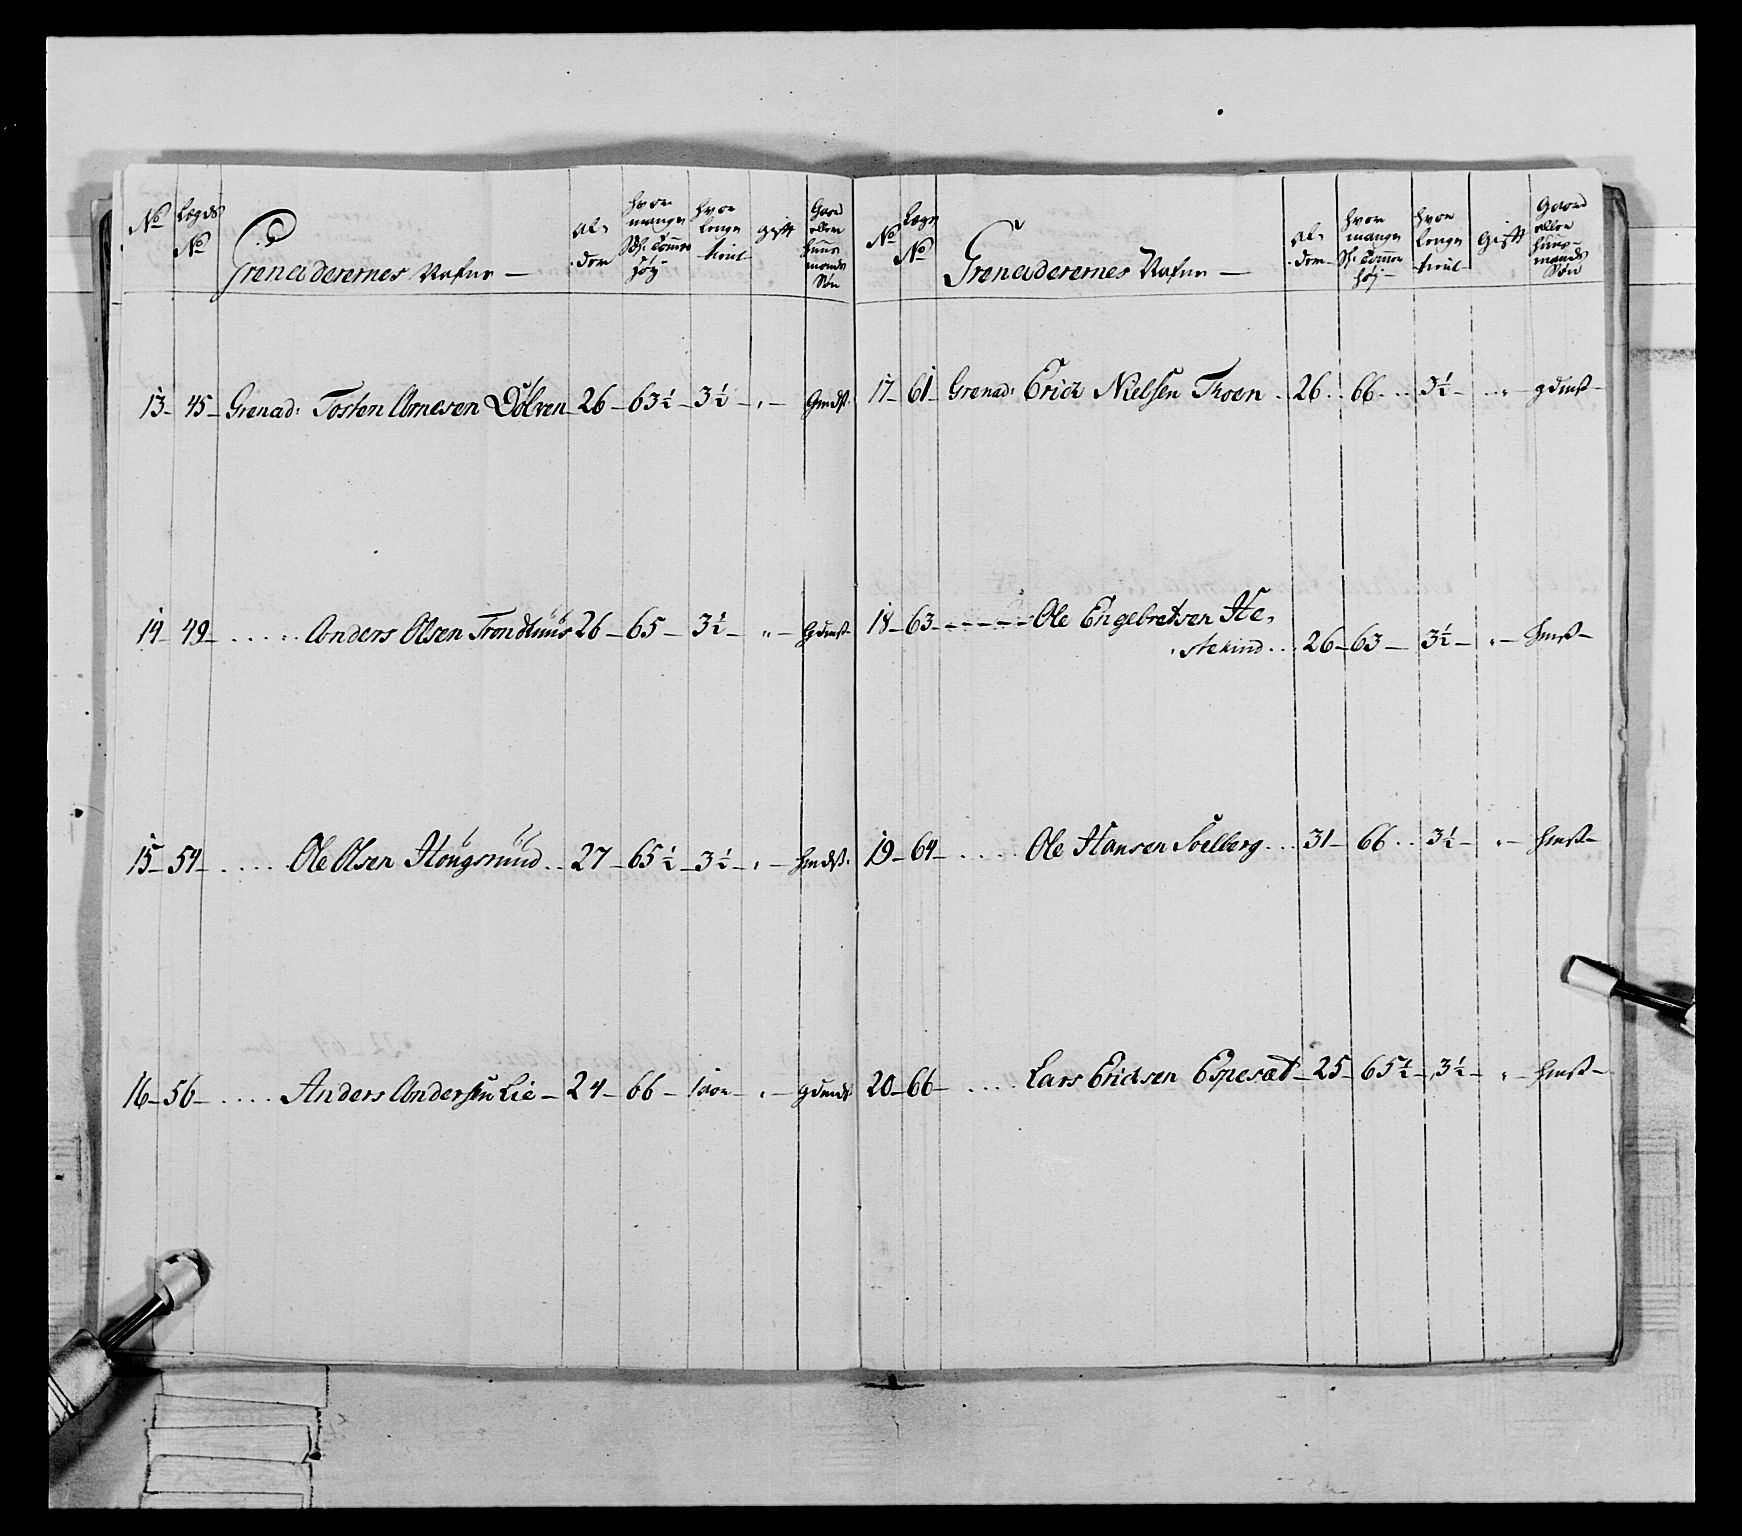 No Legds No Grenaderernes Nafne — Al- der hvor mange Sch: Tomme høy hvor lenge tient gift Gaard eller Huus mands Søn
13 — 45 — Grenad: Tosten Arnesen Dölven — 26 — 63½ — 3½ — " — Gmdſt.
14 — 49 — .... Anders Olsen Trondhuus 26 — 65 — 3½ — " — gdmſt
15 — 54 — .... Ole Olsen Hougsrüüd .. 27 — 65½ — 3½ — " — hmdſt.
16 — 56 — .... Anders Andersen Lie — 24 — 66 — — " — gdmds
No Legs No Grenaderernes Nafne — Al- der hvor mange Sch: Tomme høj hvor lenge tient gift Gaard eller huus- mands Søn
17 — 61 — Grenad: Erich Nielsen Thoen .. 26 .. 66 ... 3½ — .. " — gdmſt —
18 — 63 — — — — Ole Engebretsen He-
stekind ... 26 — 63 — 3½ — " — hmſt —
19 — 64 — .... Ole Hansen Soelberg ... 31 — 66 .. 3½ — " — hmſt —
20 — 66 — .... Lars Ericksen Espesæt — 25 — 65½ — 3½ — " — hmſt —